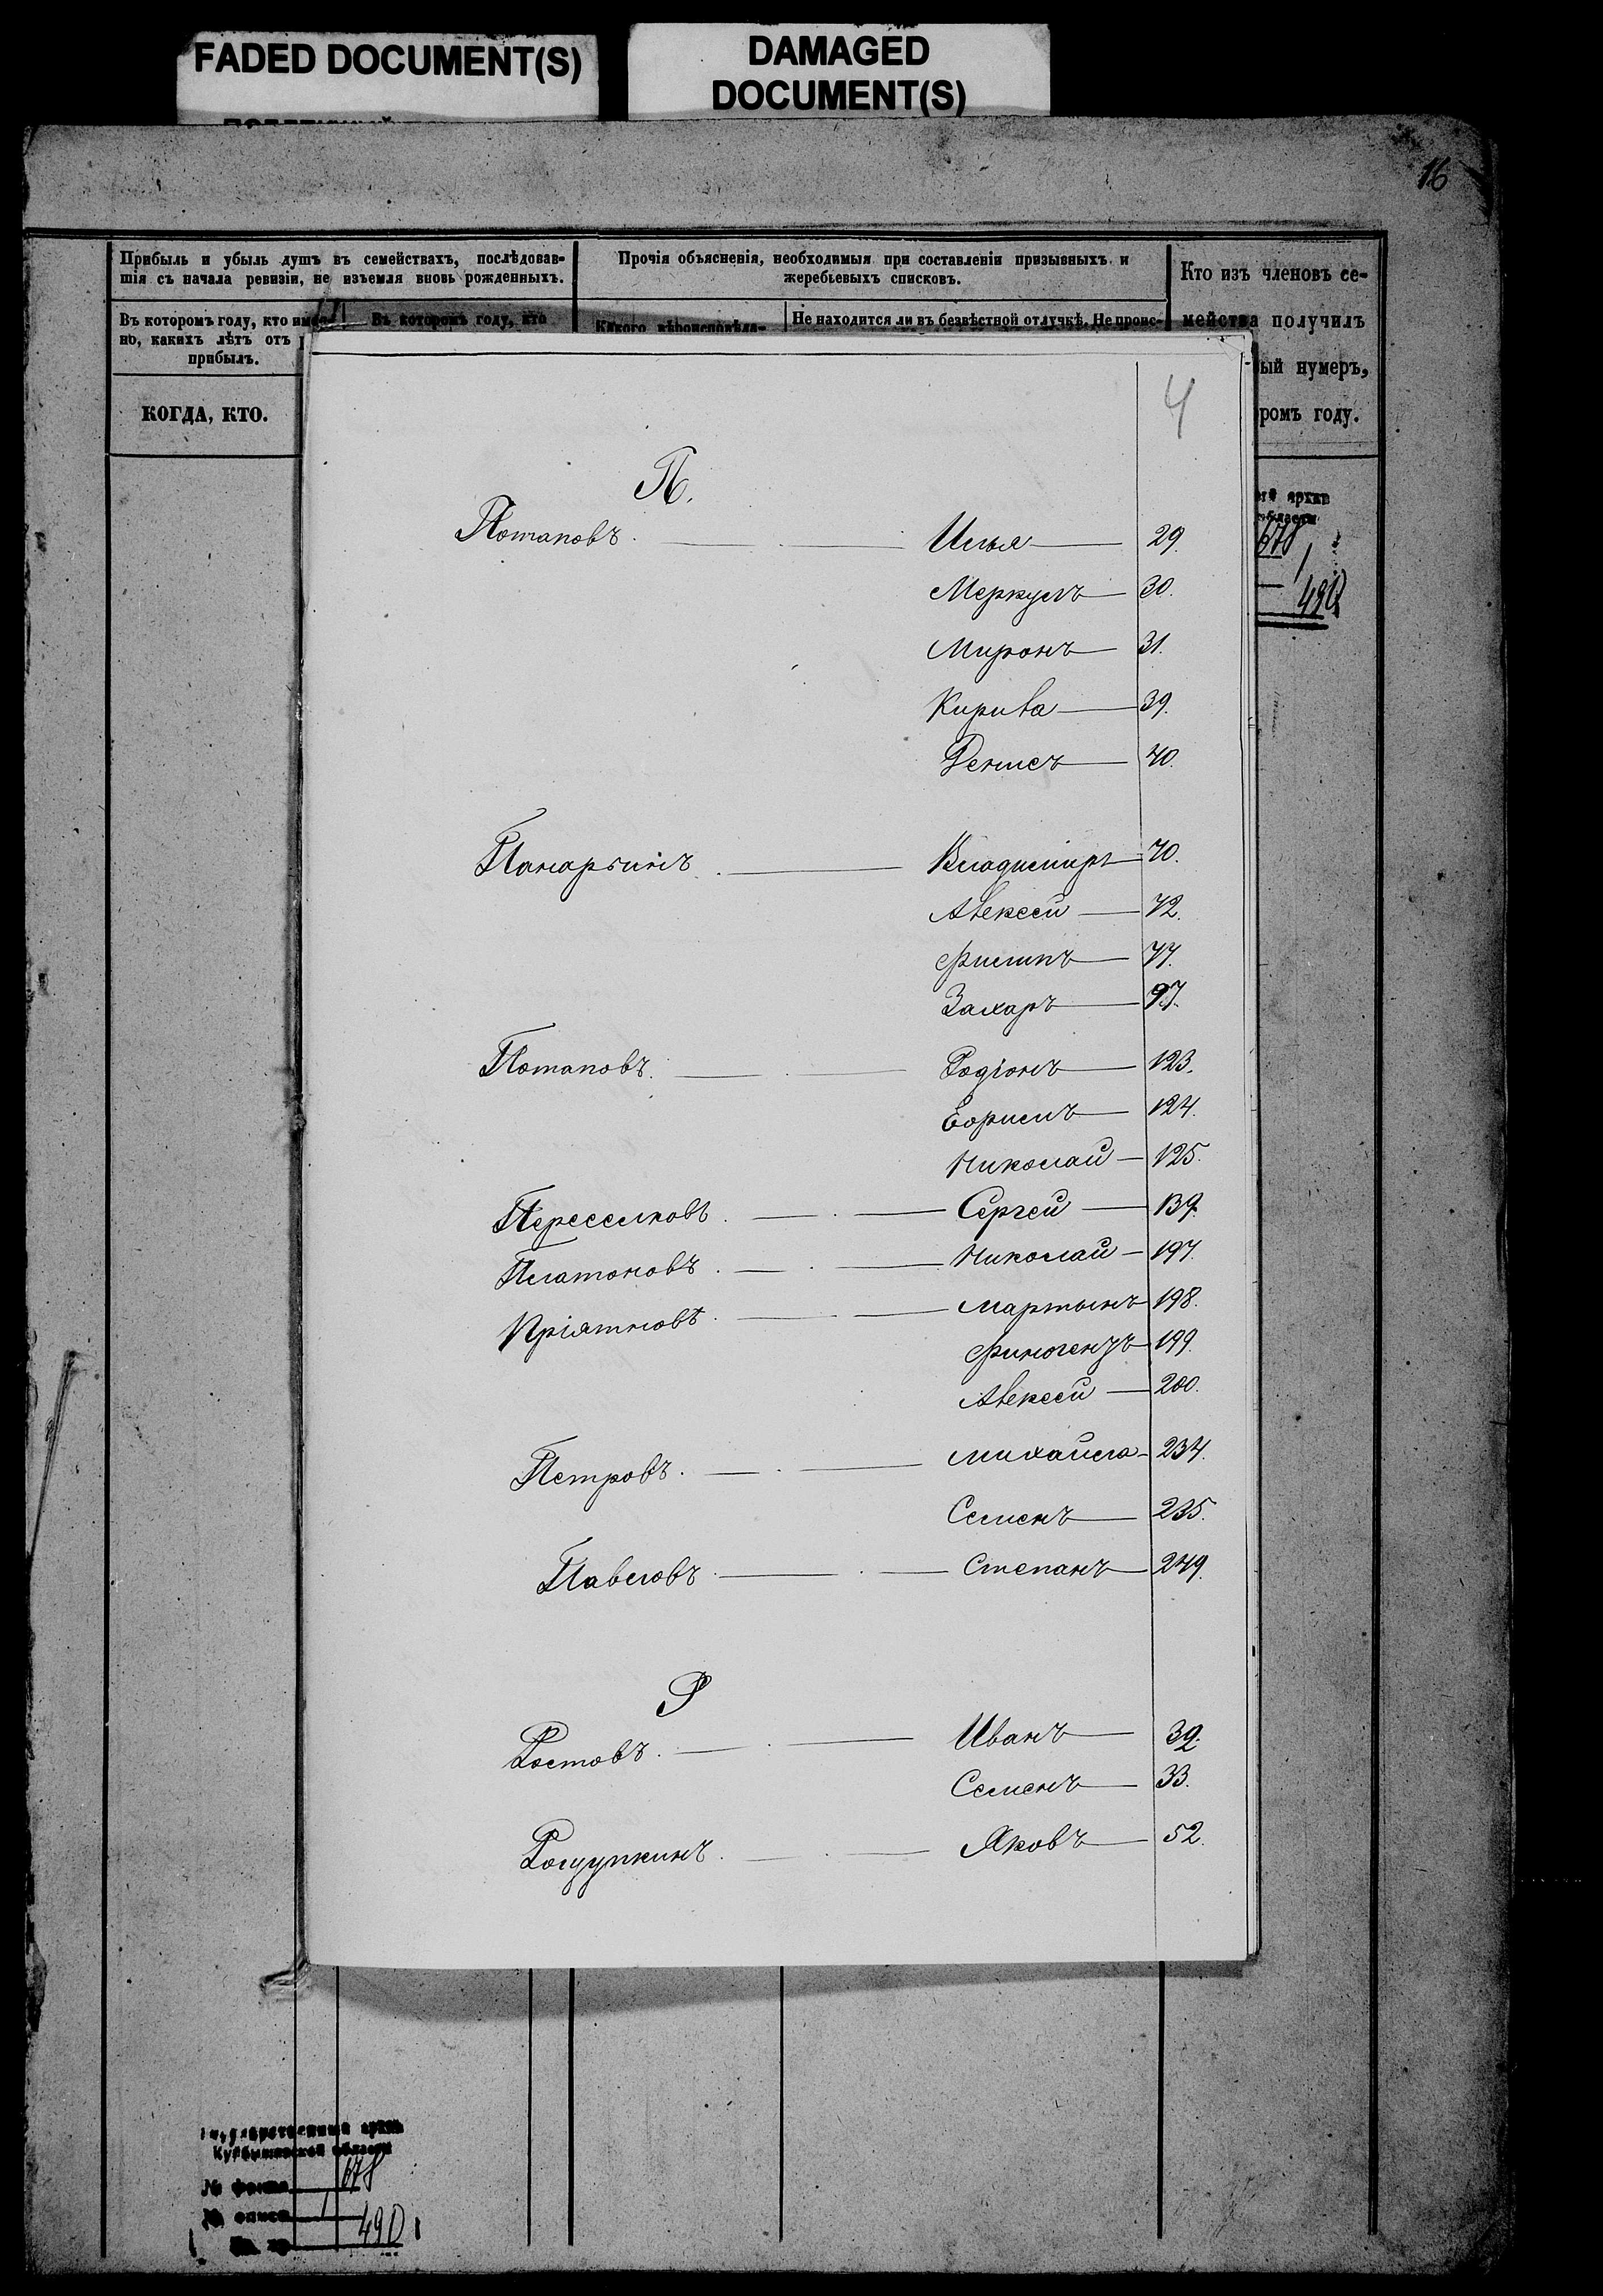 FADED DOCUMENT(S)
DAMAGED
DOCUMENT(S)
16
Прибыль и убыль душъ въ семействахъ, послѣдовав-
шія съ начала ревизіи, не изъемля вновь рожденныхъ.
Прочія объясненія, необходимыя при составленіи призывныхъ и
жеребьевыхъ списковъ.
Кто изъ членовъ се-
мейства получилъ
ый нумеръ,
ромъ году.
Въ которомъ году, кто имен-
но, какихъ лѣтъ отъ
прибылъ.
Въ которомъ году, кто
Какого вѣроисповѣда-
Не находится ли въ безвѣстной отлучкѣ. Не проис-
КОГДА, КТО.
4
П.
Потаповъ. Илья 29.
Меркулъ 30.
Миронъ 31.
Кирила 39.
Денисъ 40.
Панаргинъ. Владимиръ 70.
Алексей 72.
Филипъ 77.
Захаръ 97.
Потаповъ. Родіонъ 123.
Николай 125.
Переселковъ. Сергей 139.
Платоновъ. Николай 197.
Пріятновъ. Мартынъ 198.
Финогенъ 199.
Алексей 200.
Петровъ. Михайла 234.
Семенъ 235.
Павловъ. Степанъ 249.
Р
Ростовъ. Иванъ 32.
Семенъ 33.
Рощупкинъ. Яковъ 52.
678
1
490
Государственный архив
Куйбышевской области
№ фонда 678
№ описи 1
490